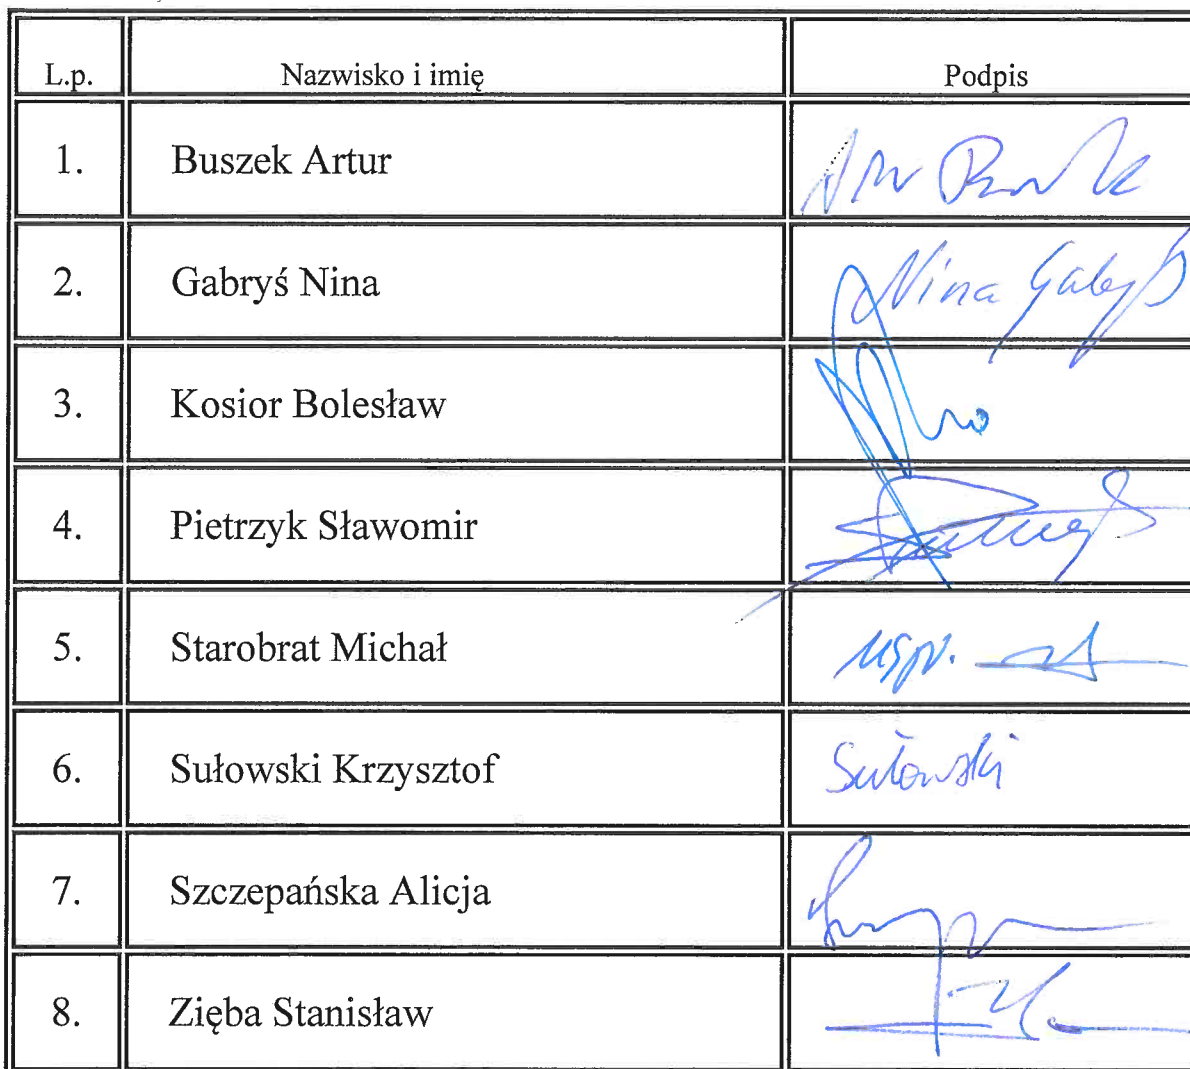 L.p. Nazwisko i imię Podpis
1. Buszek Artur
2. Gabryś Nina Nina Gabryś
3. Kosior Bolesław
4. Pietrzyk Sławomir
5. Starobrat Michał uspr.
6. Sułowski Krzysztof Sułowski
7. Szczepańska Alicja
8. Zięba Stanisław